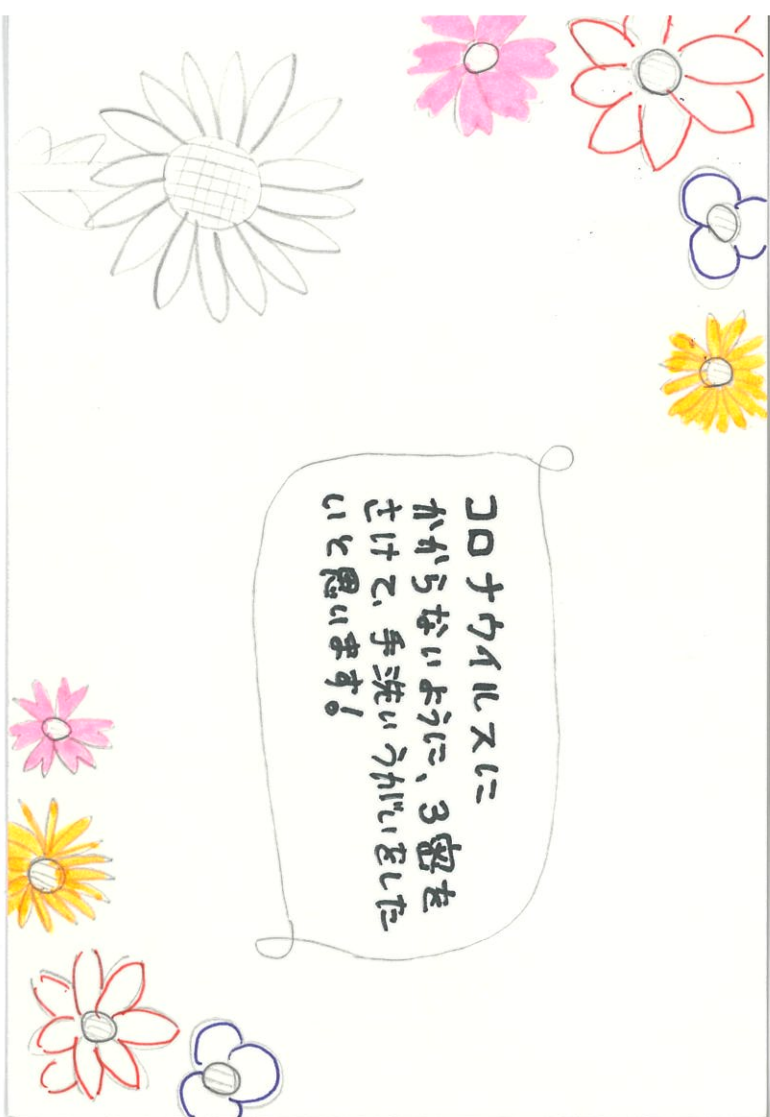 コロナウイルスに
かからないように、3密を
さけて、手洗いうがいをした
いと思います!